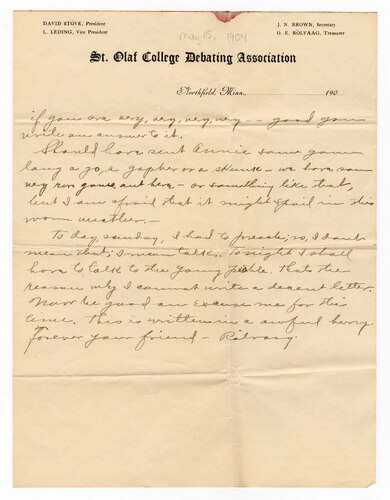 DAVID STOVE, President
L. LEDING, Vice President
J. N. BROWN, Secretary
O. E. ROLVAAG, Treasurer
May 15, 1904
St. Olaf College Debating Association
Northfield, Minn., 190
if you are very, very, very, very -- good you
write an answer to it.
Should have sent Annie some game
long ago, a gopher or a skunk - we have some
very rare game out here - or something like that,
but I am afraid that it might spoil in this
warm weather. -
To day, sunday, I had to preach; no, I dont
mean that, I mean talk. Tonight I shall
have to talk to the young people. thats the
reason why I cannot write a decent letter.
Now be good and excuse me for this
time. This is written in a awful hurry.
Forever your friend - Rölvaag.